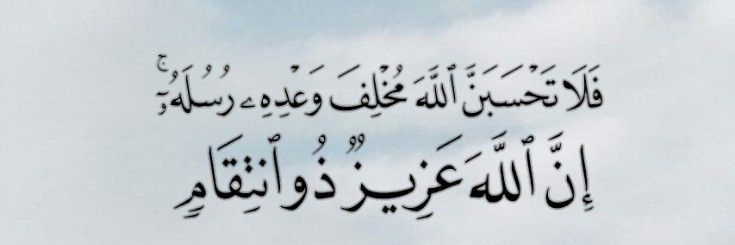 فَلَا تَحْسَبَنَّ ٱللَّهَ مُخْلِفَ وَعْدِهِۦ رُسُلَهُۥٓ ۚ
إِنَّ ٱللَّهَ عَزِيزٌ ذُو ٱنتِقَامٍ